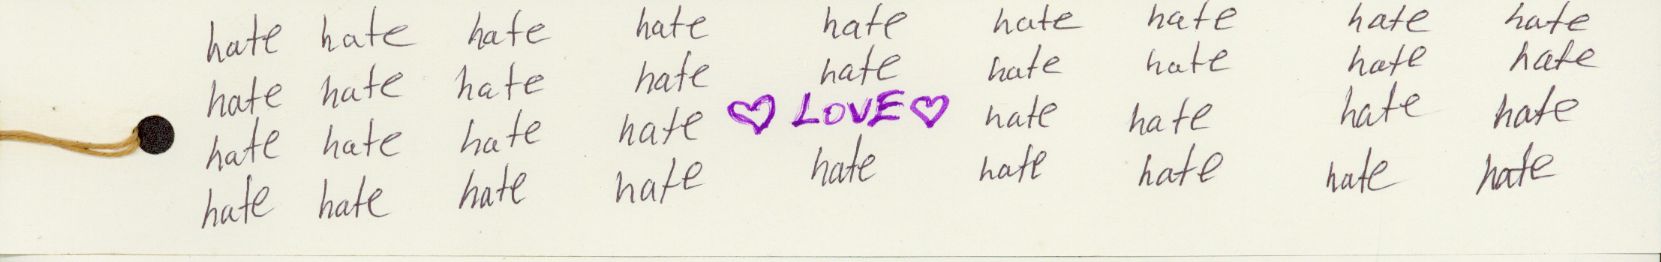 hate hate hate hate hate hate hate hate hate
hate hate hate hate hate hate hate hate hate
hate hate hate hate ♡ LOVE ♡ hate hate hate hate
hate hate hate hate hate hate hate hate hate